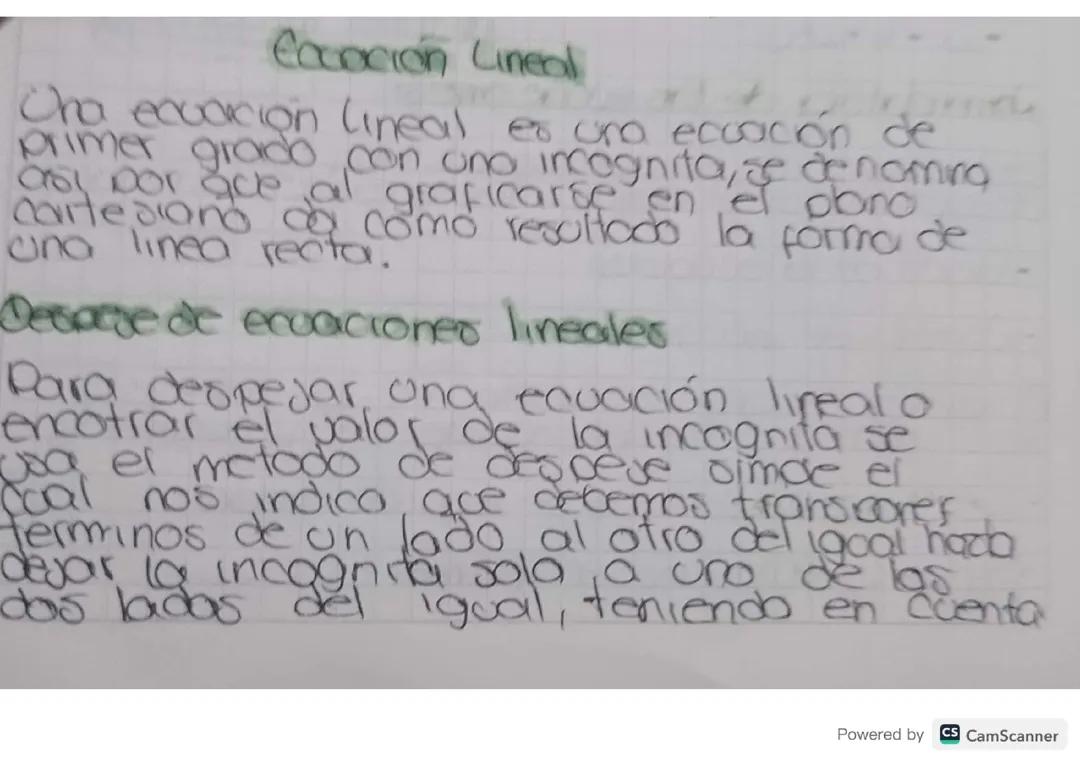 Ecuación Lineal
Una ecuación lineal es una ecuación de
primer grado con una incognita, se denomina
asi por que al graficarse en el plano
cartesiano da como resultado la forma de
una linea recta.
Despeje de ecuaciones lineales
Para despejar una ecuación lineal o
encotrar el valor de la incognita se
usa el metodo de despeje el
cual nos indica que debemos
terminos de un lado al otro del igual hasta
dejar la incognita sola a uno de los
dos lados del igual, teniendo en cuenta
Powered by CS CamScanner